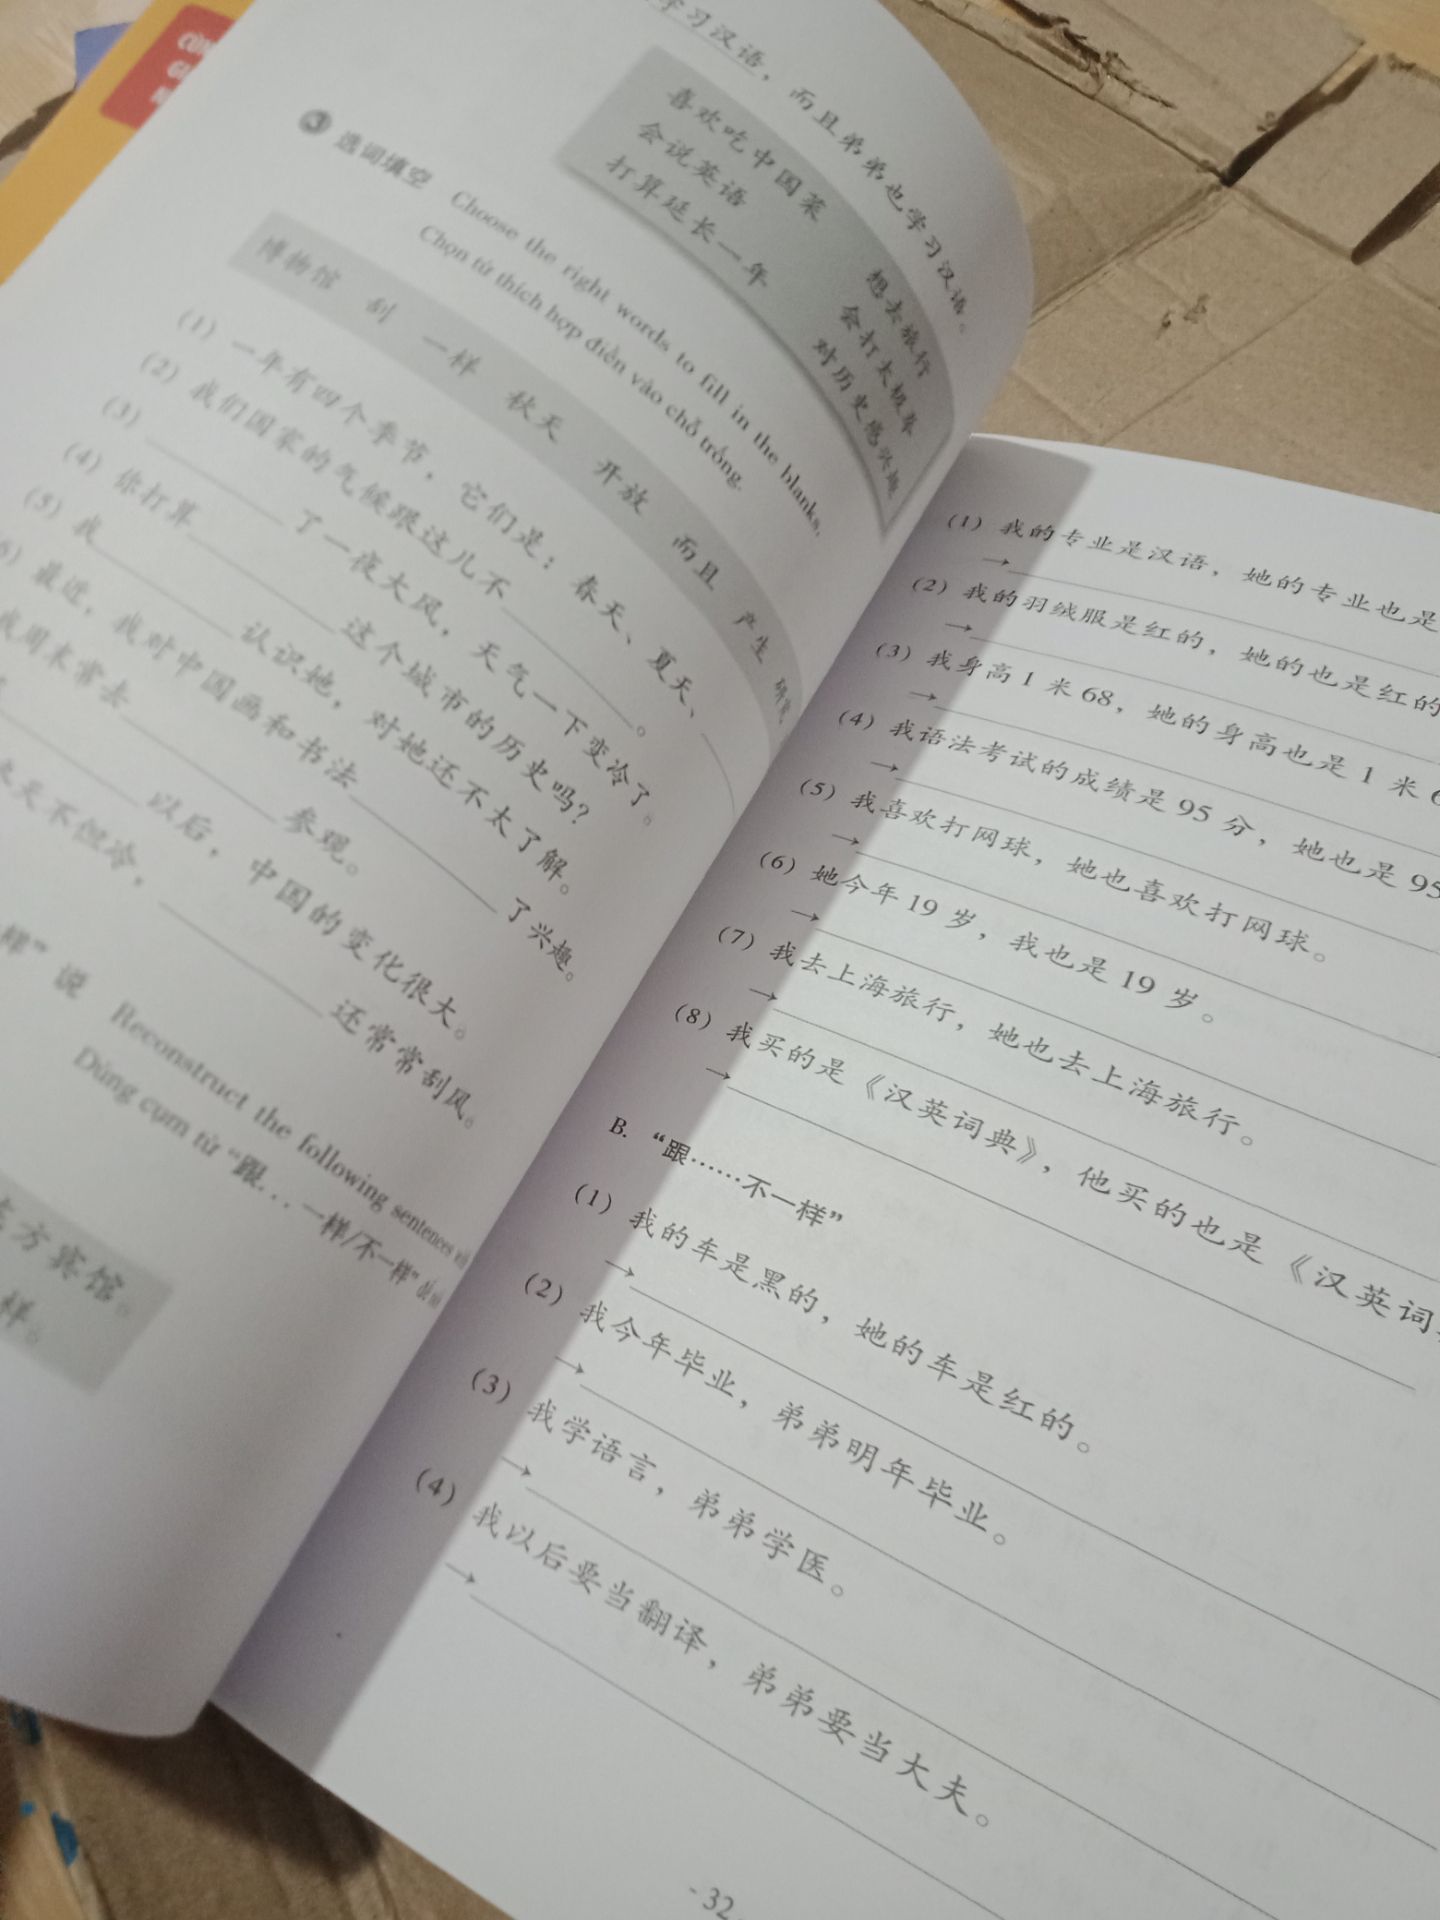 学习汉语，而且弟弟也学习汉语。
喜欢吃中国菜 想去旅行
会说英语 会打太极拳
打算延长一年 对历史感兴趣
3 选词填空 Choose the right words to fill in the blanks.
Chọn từ thích hợp điền vào chỗ trống.
博物馆 刮 一样 秋天 开放 而且 产生 研究
(1) 一年有四个季节，它们是：春天、夏天、
(2) 我们国家的气候跟这儿不 。
(3) 了一夜大风，天气一下变冷了。
(4) 你打算 这个城市的历史吗？
(5) 我 认识她，对她还不太了解。
6) 最近，我对中国画和书法 了兴趣。
我周末常去 参观。
以后，中国的变化很大。
天不但冷， 还常常刮风。
样”说 Reconstruct the following sentences
Dùng cụm từ “跟... 一样/不一样”
方宾馆。
样。
(1) 我的专业是汉语，她的专业也是
→
(2) 我的羽绒服是红的，她的也是红的
→
(3) 我身高 1 米 68，她的身高也是 1 米 6
→
(4) 我语法考试的成绩是 95 分，她也是 95
→
(5) 我喜欢打网球，她也喜欢打网球。
→
(6) 她今年 19 岁，我也是 19 岁。
→
(7) 我去上海旅行，她也去上海旅行。
→
(8) 我买的是《汉英词典》，他买的也是《汉英词
→
B. “跟……不一样”
(1) 我的车是黑的，她的车是红的。
→
(2) 我今年毕业，弟弟明年毕业。
→
(3) 我学语言，弟弟学医。
→
(4) 我以后要当翻译，弟弟要当大夫。
→
- 32